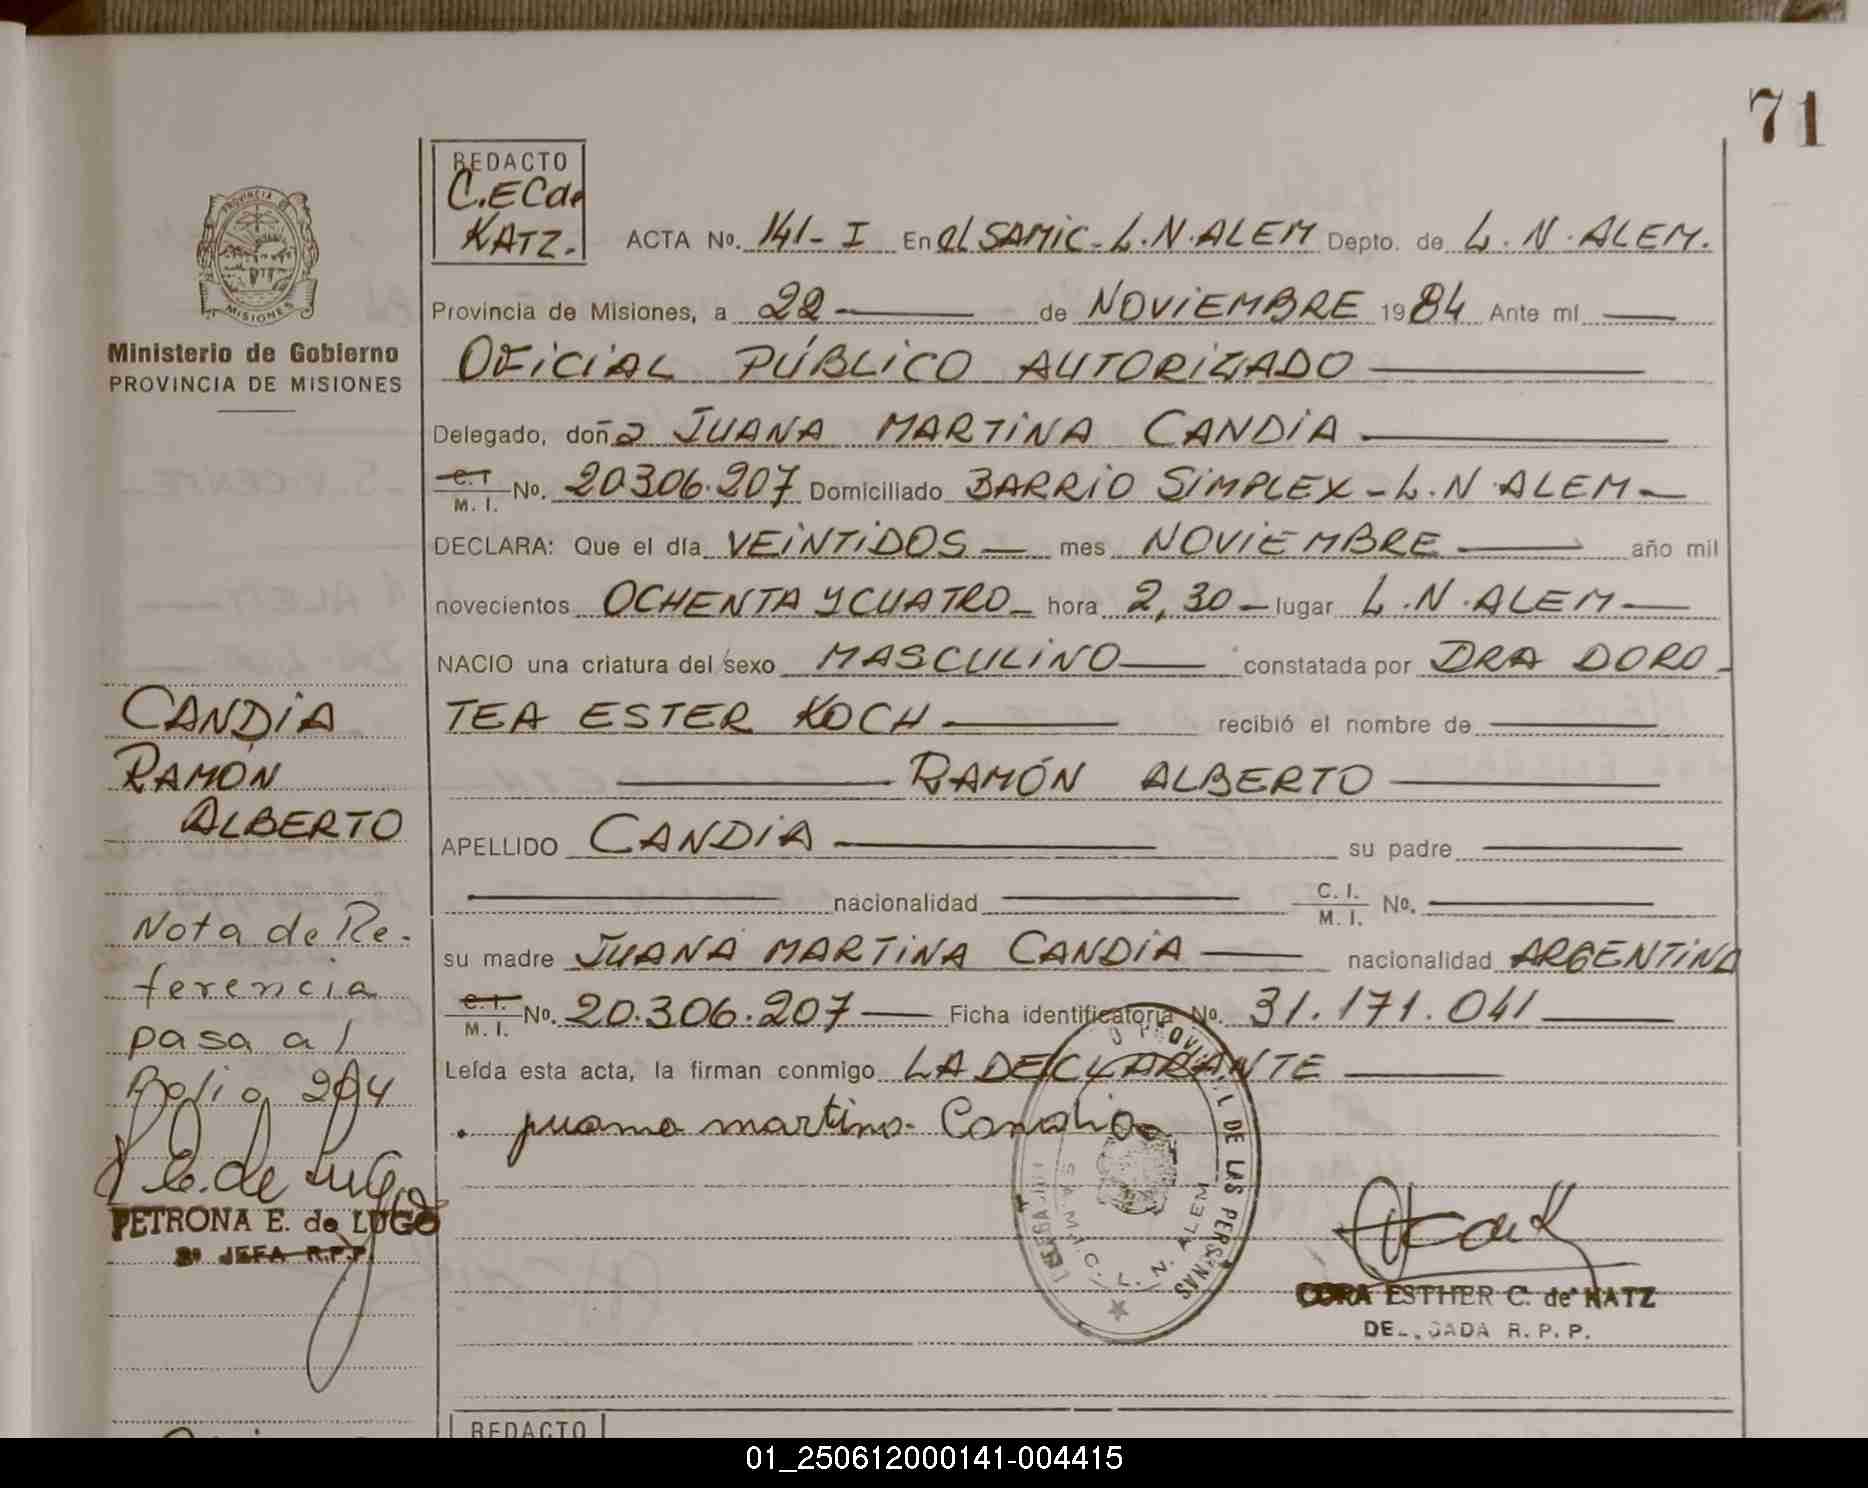 71
PROVINCIA DE
MISIONES
Ministerio de Gobierno
PROVINCIA DE MISIONES
REDACTO
C.EC de
KATZ.
ACTA No. 141- I En el SAMIC- L.N.ALEM Depto. de L. N. ALEM.
Provincia de Misiones, a 22 de NOVIEMBRE 1984 Ante mi
OFICIAL PÚBLICO AUTORIZADO
Delegado, doña JUANA MARTINA CANDIA
C.I. M. I. No. 20306.207 Domiciliado BARRIO SIMPLEX - L.N.ALEM-
DECLARA: Que el día VEINTIDOS mes NOVIEMBRE año mil
novecientos OCHENTA Y CUATRO hora 2,30 lugar L.N.ALEM
NACIO una criatura del sexo MASCULINO constatada por DRA DORO-
TEA ESTER KOCH recibió el nombre de
RAMÓN ALBERTO
APELLIDO CANDIA su padre
nacionalidad C. I. M. I. No.
su madre JUANA MARTINA CANDIA nacionalidad ARGENTINA
C.I. M. I. No. 20.306.207 Ficha identificatoria No. 31.171.041
Leída esta acta, la firman conmigo LA DECLARANTE
juana martina Candia
CANDIA
RAMÓN
ALBERTO
Nota de Re-
ferencia
pasa al
Folio 204
P E. de Lugo
PETRONA E. de LUGO
2ª JEFA R.P.P.
DE LAS PERSONAS
S.A.M.I.C. L. N. ALEM
CORA ESTHER C. de KATZ
DELEGADA R. P. P.
REDACTO
01_250612000141-004415